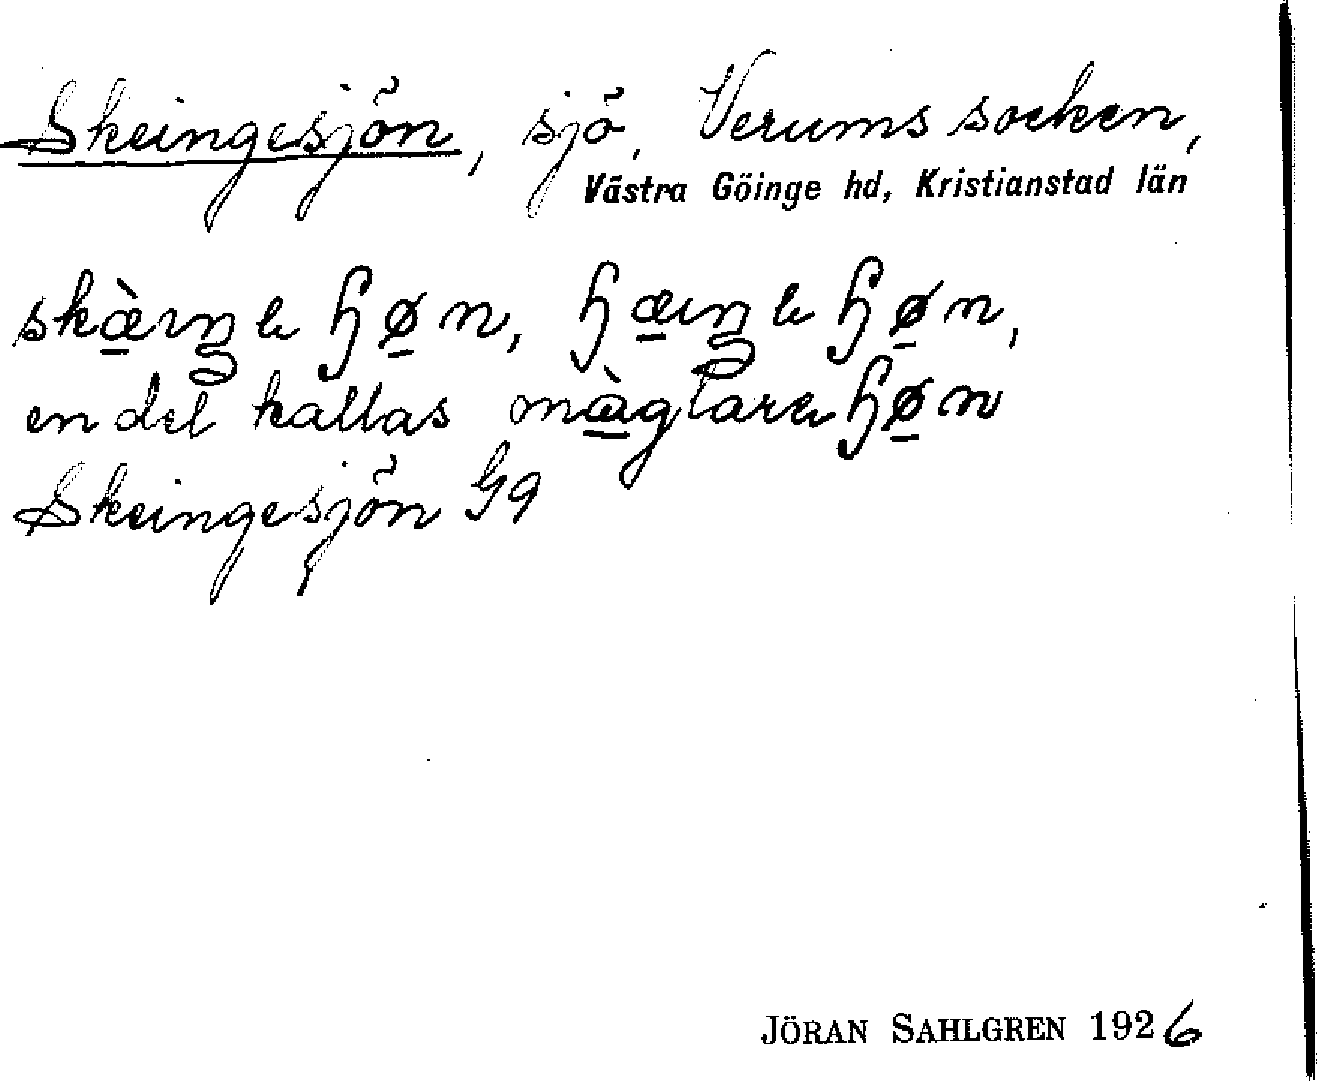 Skeingesjön, sjö, Verums socken,
Västra Göinge hd, Kristianstad län
skæ̀ıŋe ɧøn, ɧæıŋe ɧøn,
en del kallas mæ̀glare ɧøn
Skeingesjön G9
JÖRAN SAHLGREN 1926